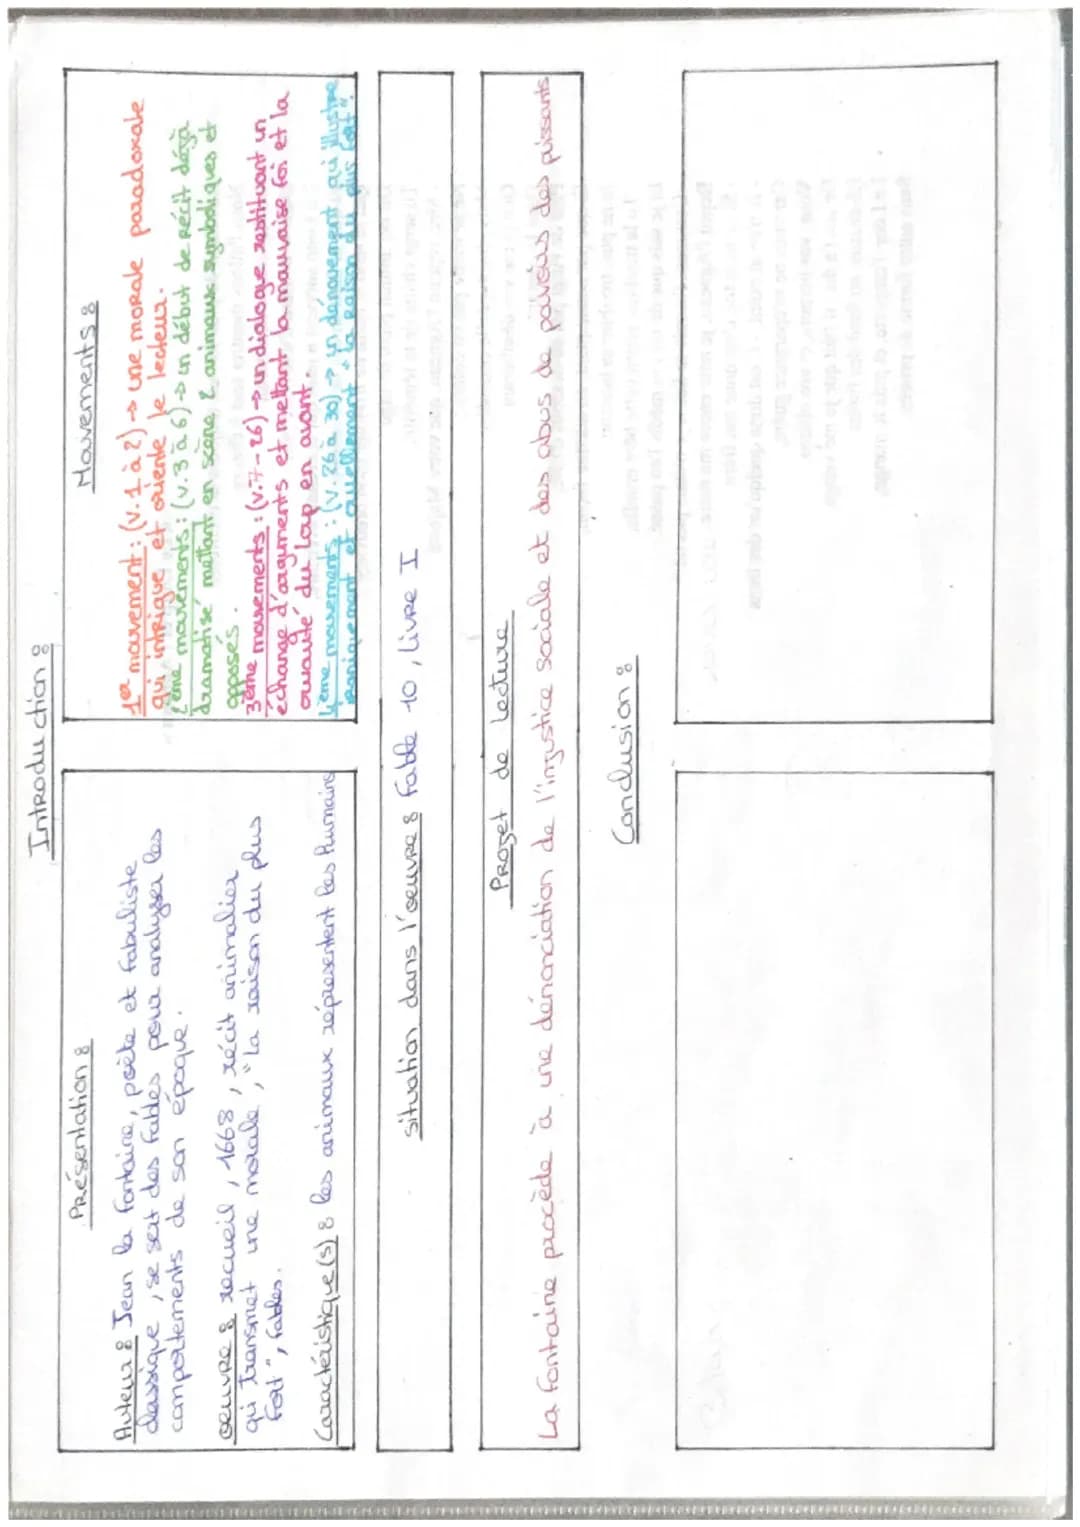 Introduction :
Présentation :
Auteur : Jean la Fontaine, poète et fabuliste
classique, se sert des fables pour analyser les
comportements de son époque.
œuvre : recueil, 1668, récit animalier
qui transmet une morale, "la raison du plus
fort", fables.
Caractéristique(s) : les animaux représentent les humains
Mouvements :
1er mouvement : (v. 1 à 2) → une morale paradoxale
qui intrigue et oriente le lecteur.
2ème mouvements : (v. 3 à 6) → un début de récit déjà
dramatisé mettant en scène 2 animaux symboliques et
opposés.
3ème mouvements : (v. 7 - 26) → un dialogue restituant un
échange d'arguments et mettant la mauvaise foi et la
cruauté du Loup en avant.
4ème mouvements : (v. 26 à 30) → un dénouement qui illustre
ironiquement et cruellement "la raison du plus fort".
situation dans l'œuvre : Fable 10, Livre I
Projet de lecture
La Fontaine procède à une dénonciation de l'injustice sociale et des abus de pouvoirs des puissants
Conclusion :